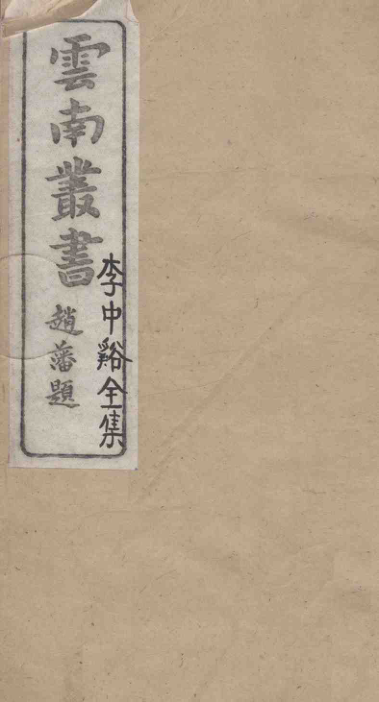 雲南叢書
趙藩題
李中谿全集